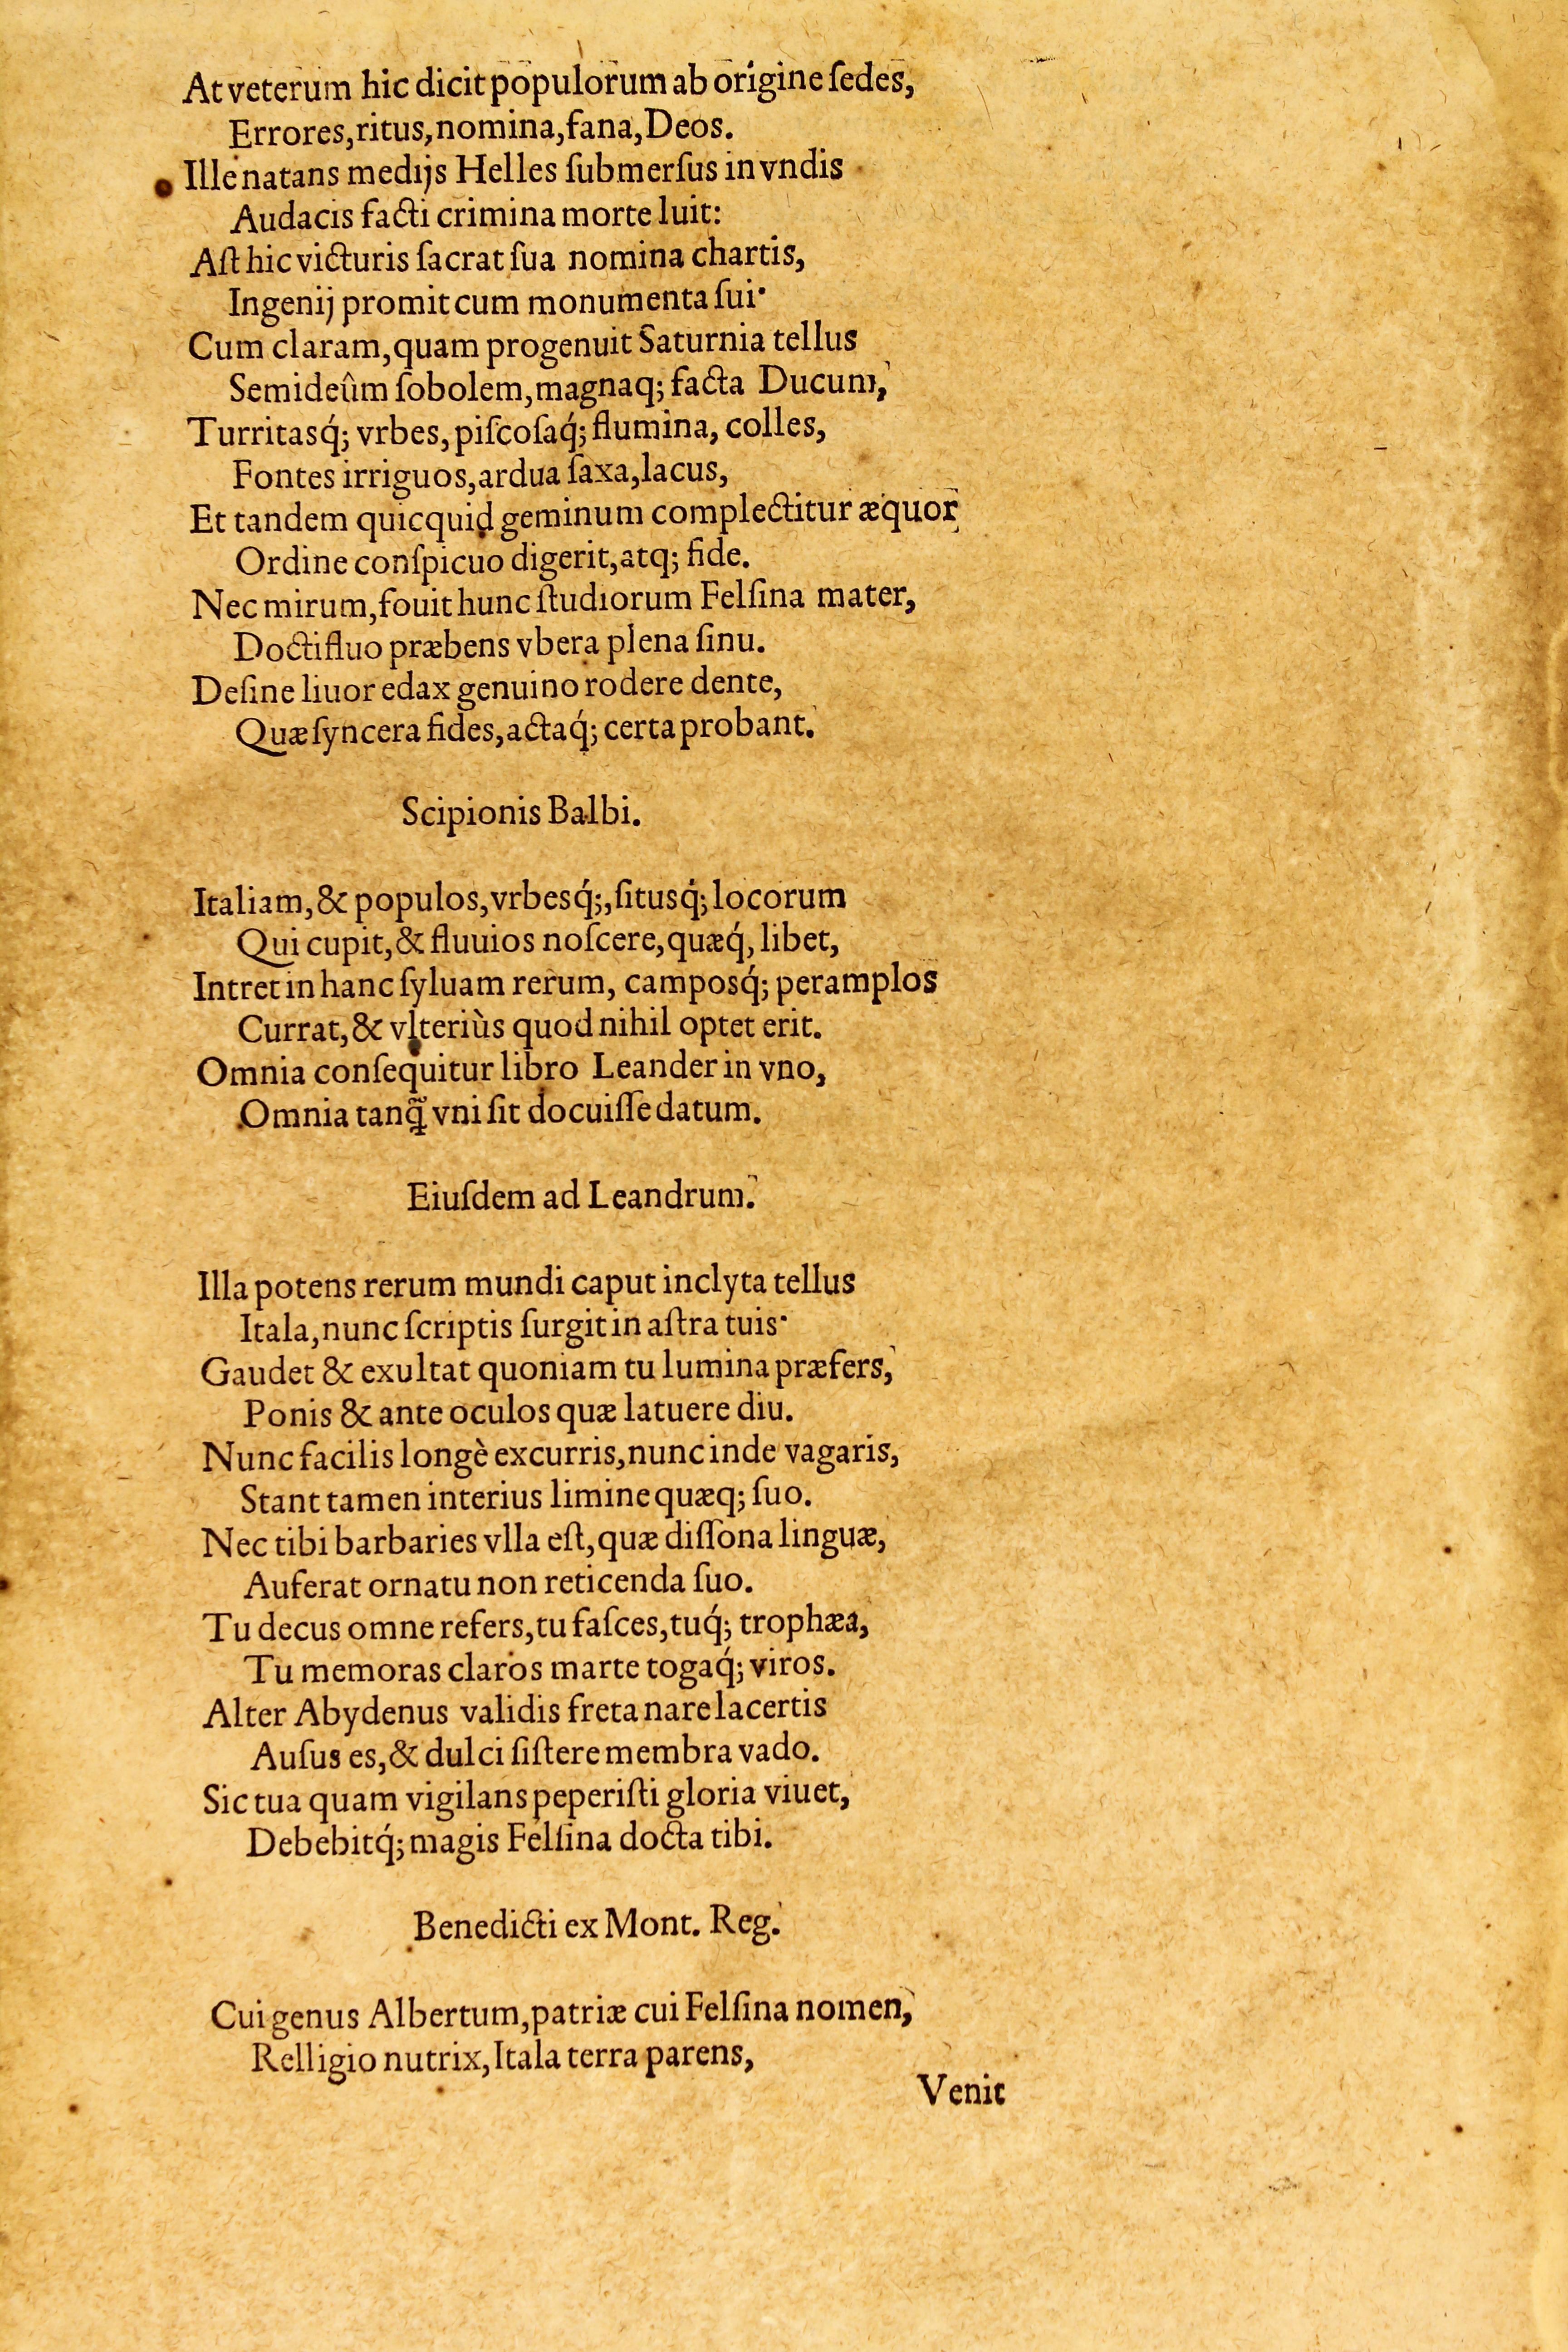 At veterum hic dicit populorum ab origine ſedes,
Errores, ritus, nomina, fana, Deos.
Ille natans medijs Helles ſubmerſus in vndis
Audacis facti crimina morte luit:
Aſt hic victuris ſacrat ſua nomina chartis,
Ingenij promit cum monumenta ſui.
Cum claram, quam progenuit Saturnia tellus
Semideûm ſobolem, magnaq; facta Ducum,
Turritasq́; vrbes, piſcoſaq́; flumina, colles,
Fontes irriguos, ardua ſaxa, lacus,
Et tandem quicquid geminum complectitur æquor
Ordine conſpicuo digerit, atq; fide.
Nec mirum, fouit hunc ſtudiorum Felſina mater,
Doctifluo præbens vbera plena ſinu.
Deſine liuor edax genuino rodere dente,
Quæ ſyncera fides, actaq́; certa probant.
Scipionis Balbi.
Italiam, & populos, vrbesq́;, ſitusq́; locorum
Qui cupit, & fluuios noſcere, quæq́, libet,
Intret in hanc ſyluam rerum, camposq́; peramplos
Currat, & vlteriùs quod nihil optet erit.
Omnia conſequitur libro Leander in vno,
Omnia tanq̃ vni ſit docuiſſe datum.
Eiuſdem ad Leandrum.
Illa potens rerum mundi caput inclyta tellus
Itala, nunc ſcriptis ſurgit in aſtra tuis.
Gaudet & exultat quoniam tu lumina præfers,
Ponis & ante oculos quæ latuere diu.
Nunc facilis longè excurris, nunc inde vagaris,
Stant tamen interius limine quæq; ſuo.
Nec tibi barbaries vlla eſt, quæ diſſona linguæ,
Auferat ornatu non reticenda ſuo.
Tu decus omne refers, tu faſces, tuq́; trophæa,
Tu memoras claros marte togaq́; viros.
Alter Abydenus validis freta nare lacertis
Auſus es, & dulci ſiſtere membra vado.
Sic tua quam vigilans peperiſti gloria viuet,
Debebitq́; magis Felſina docta tibi.
Benedicti ex Mont. Reg.
Cui genus Albertum, patriæ cui Felſina nomen,
Relligio nutrix, Itala terra parens,
Venit